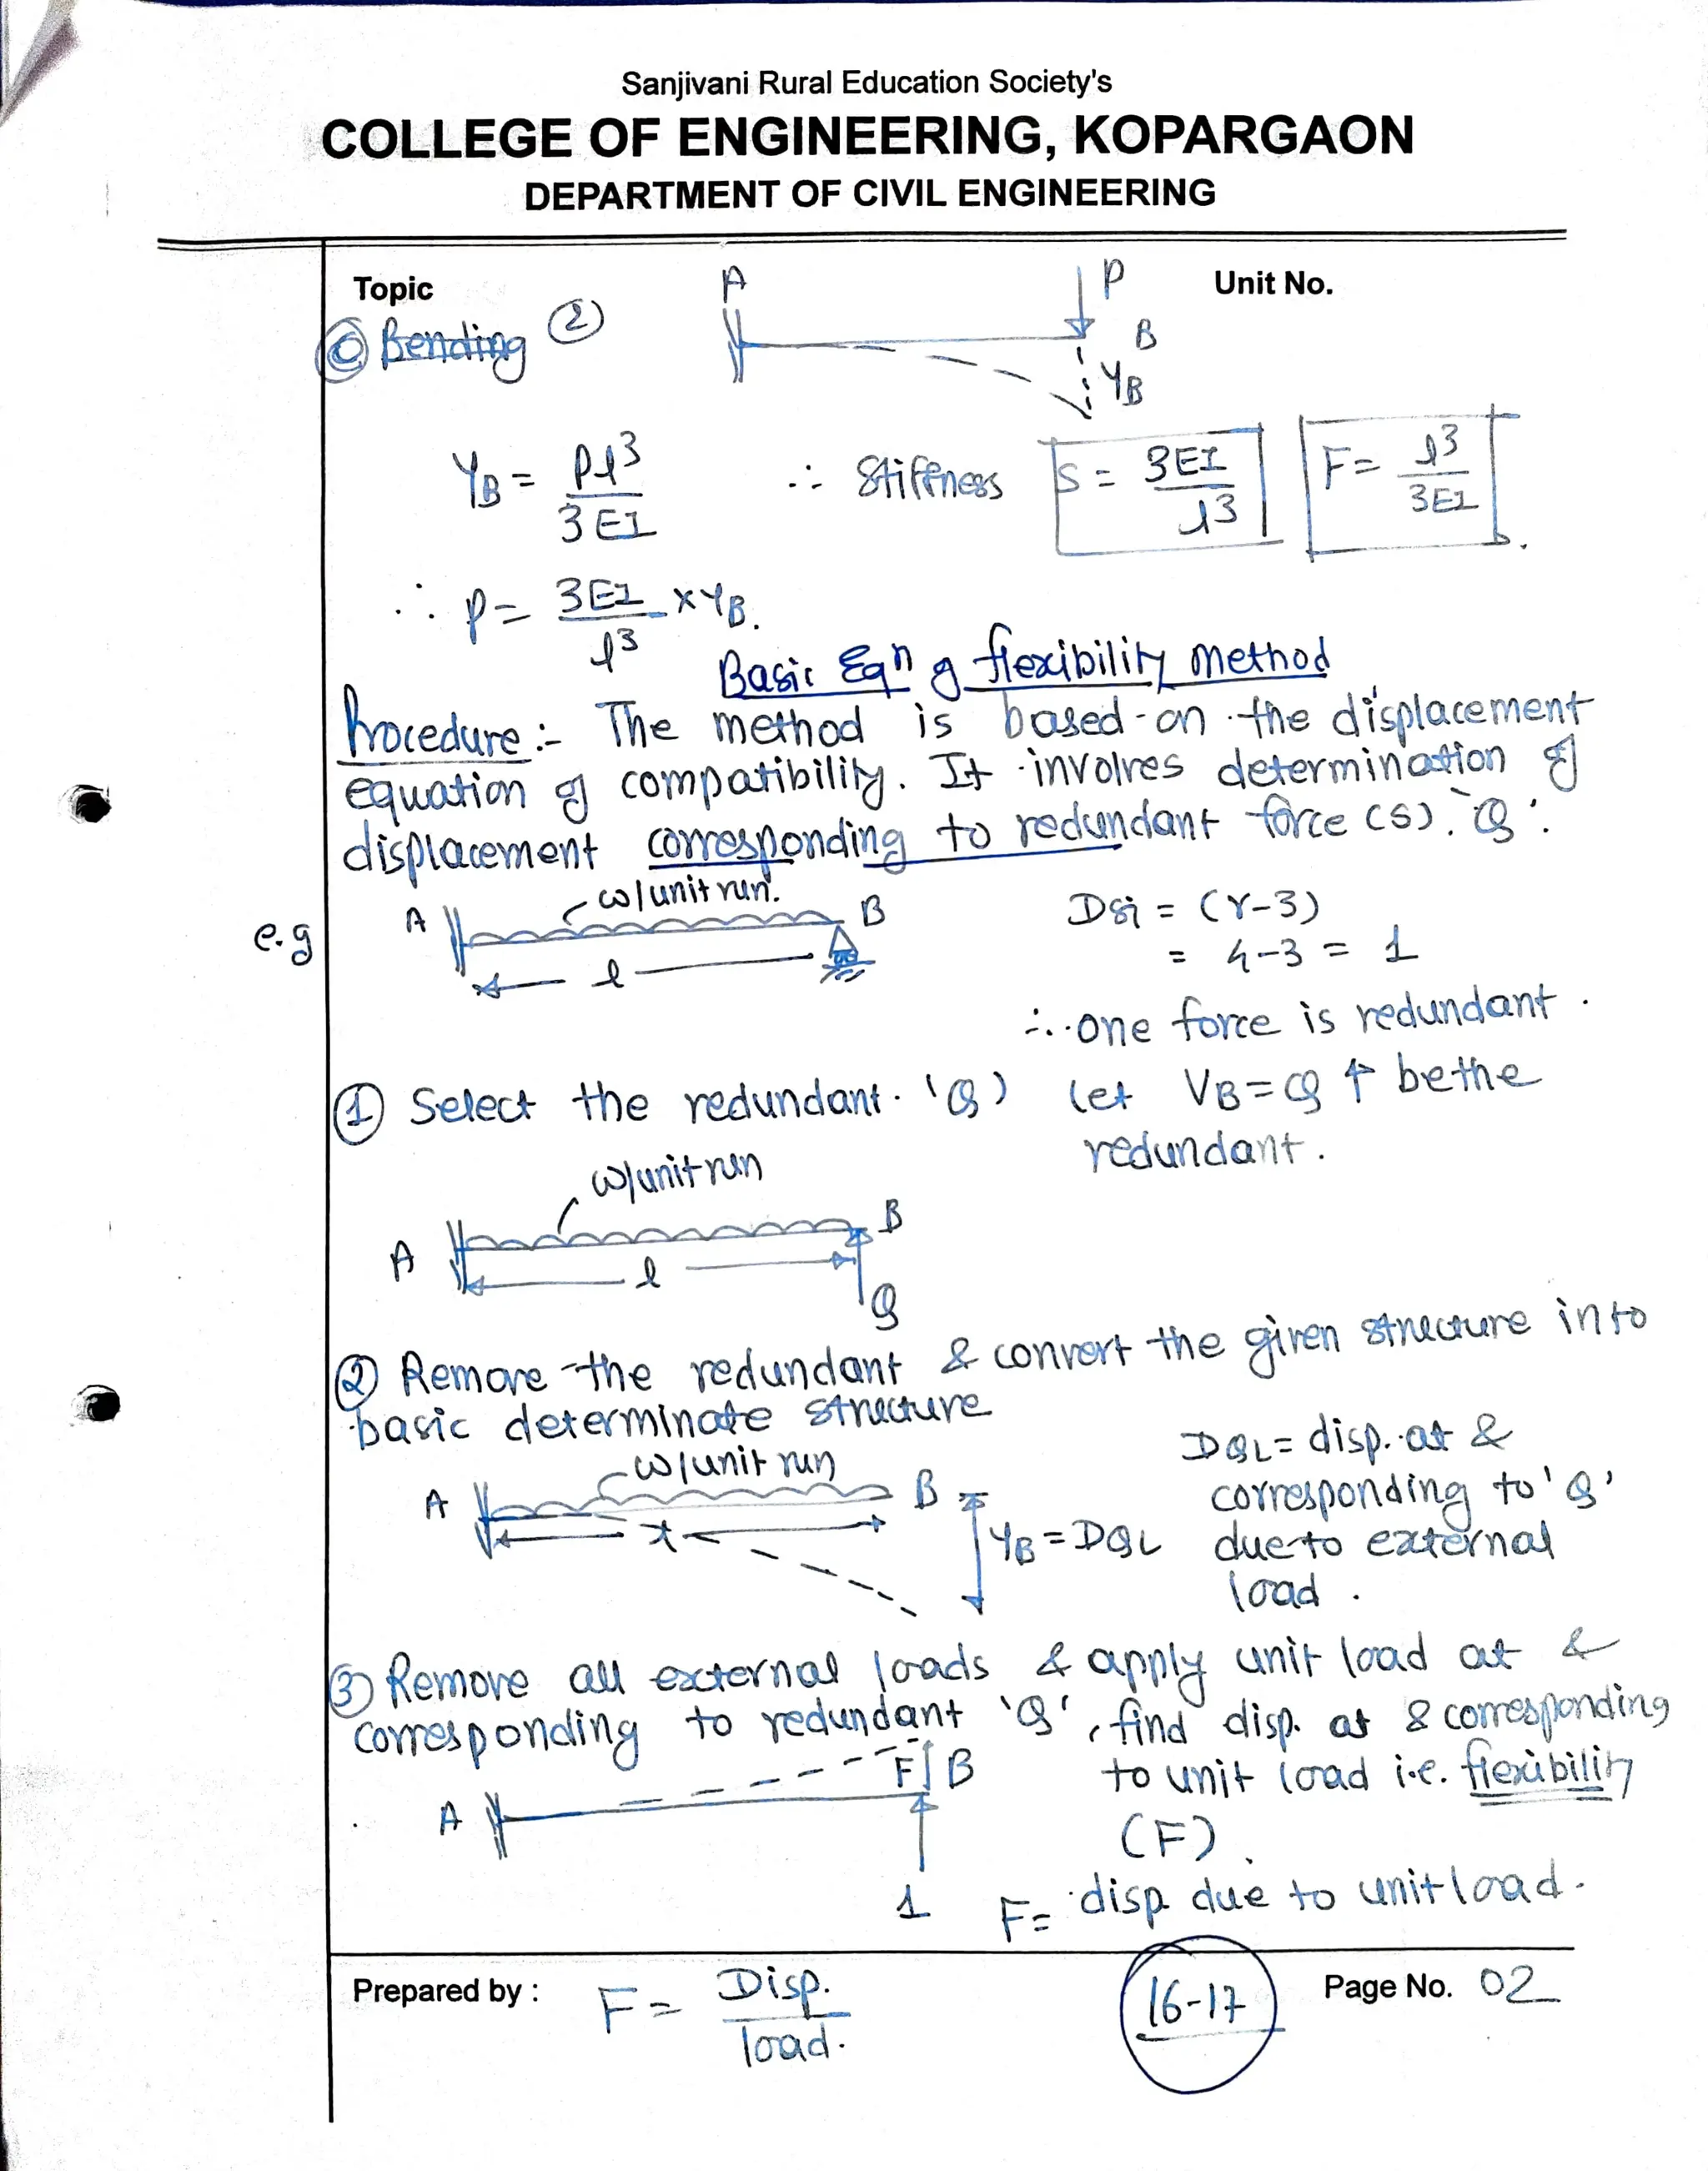 Sanjivani Rural Education Society's
COLLEGE OF ENGINEERING, KOPARGAON
DEPARTMENT OF CIVIL ENGINEERING
Topic
Unit No.
A
P
© Bending ②
B
YB
YB = Pl³/3EI ∴ Stiffness S = 3EI/l³ F = l³/3EI
∴ P = 3EI/l³ × YB.
Basic Eqn of flexibility Method
Procedure :- The method is based on the displacement
equation of compatibility. It involves determination of
displacement corresponding to redundant force (s). 'Q'.
e.g
A
w/unit run.
B
l
Dsi = (r-3)
= 4-3 = 1
∴ one force is redundant.
① Select the redundant. 'Q') Let VB = Q ↑ be the
redundant.
w/unit run
A
B
l
Q
② Remove the redundant & convert the given structure into
basic determinate structure
w/unit run
A
B
l
YB = DQL
DQL = disp. at &
corresponding to 'Q'
due to external
load.
③ Remove all external loads & apply unit load at &
corresponding to redundant 'Q', find disp. at & corresponding
to unit load i.e. flexibility
(F).
A
F
B
1
F = disp due to unit load.
Prepared by :
F = Disp./load.
16-17
Page No. 02